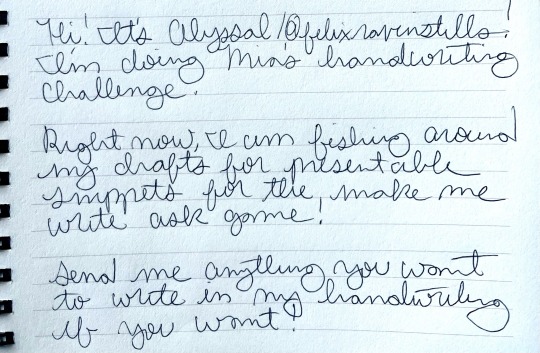 Hi! It's Alyssa!/@felixravenstills!
I'm doing Mia's handwriting
challenge.
Right now, I am fishing around
my drafts for presentable
snippets for the, make me
write ask game!
Send me anything you want
to write in my handwriting
if you want!